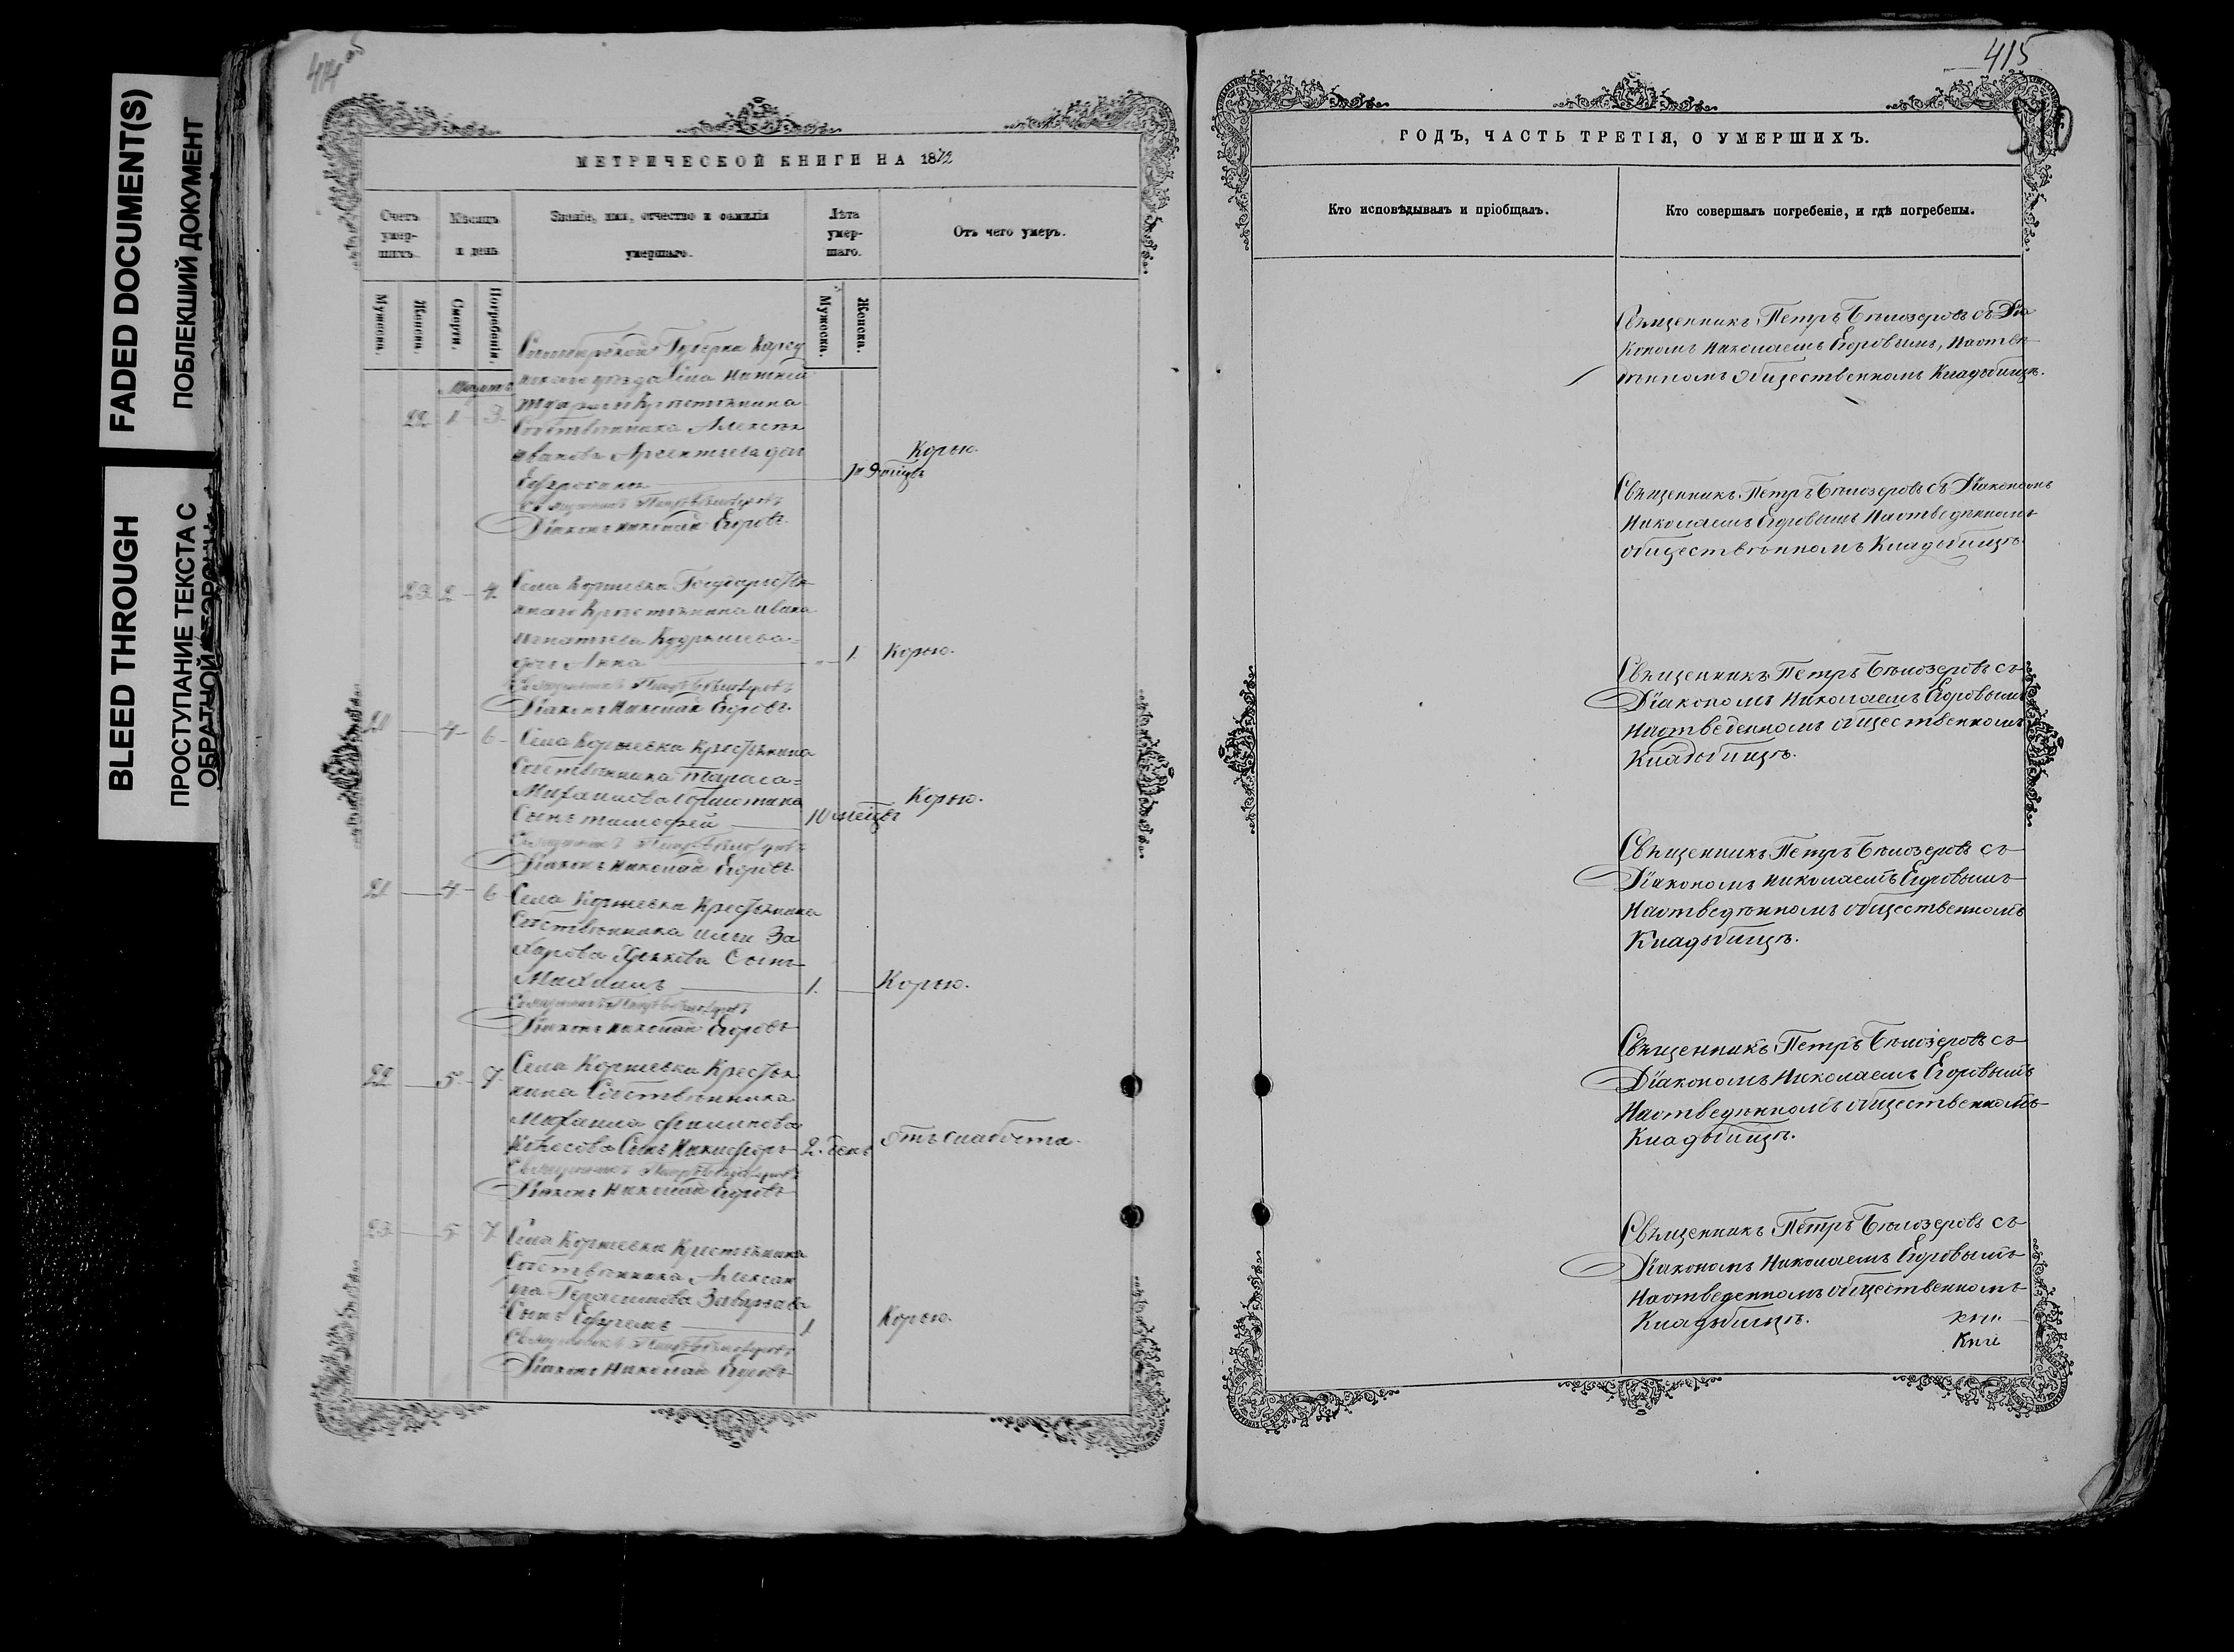 FADED DOCUMENT(S)
ПОБЛЕКШИЙ ДОКУМЕНТ
BLEED THROUGH
ПРОСТУПАНИЕ ТЕКСТА С
ОБРАТНОЙ СТОРОНЫ
414 об
МЕТРИЧЕСКОЙ КНИГИ НА 1872
Счетъ умер-шихъ.
Мѣсяцъ и день
Званіе, имя, отчество и фамилія умершаго.
Лѣта умер-шаго.
Отъ чего умеръ.
Мужеска.
Женска.
Смерти.
Погребенія.
Мужеска.
Женска.
Симбирской Губерніи Карсу
Марта
нскаго уѣзда Села
22 1 3
Крестьянина
Собственника Алексѣя
Иванова Арсентьева дочь
Корью.
Ефросинья
Священникъ Петръ Бѣлозеровъ
Діаконъ Николай Егоровъ.
23 2 4 Села Коржевки Государстве
ннаго Крестьянина Ивана
Игнатьева
дочь Анна 1. Корью.
Священникъ Петръ Бѣлозеровъ
Діаконъ Николай Егоровъ.
20 4 6 Села Коржевки Крестьянина
Собственника Тараса
Михайлова
Корью.
Сынъ Тимофей 10 мѣсцъ
Священникъ Петръ Бѣлозеровъ
Діаконъ Николай Егоровъ.
21 4 6 Села Коржевки Крестьянина
Собственника Ильи За
харова Сынъ
1. Корью.
Священникъ Петръ Бѣлозеровъ
Діаконъ Николай Егоровъ
22 5 7 Села Коржевки Крестья
нина Собственника
Михаила Филипова
Сынъ Никифоръ 2. дент Отъ слабости.
Священникъ Петръ Бѣлозеровъ
Діаконъ Николай Егоровъ
23 5 7 Села Коржевки Крестьянина
Собственника Алексан
Герасимова
Сынъ Ефремъ 1 Корью.
Священникъ Петръ Бѣлозеровъ
Діаконъ Николай Егоровъ
415
ГОДЪ, ЧАСТЬ ТРЕТІЯ, О УМЕРШИХЪ.
Кто исповѣдывалъ и пріобщалъ.
Кто совершалъ погребеніе, и гдѣ погребены.
Священникъ Петръ Бѣлозеровъ съ Діа
кономъ Николаемъ Егоровымъ, На отве
денномъ общественномъ Кладбищѣ.
Священникъ Петръ Бѣлозеровъ съ Діакономъ
Николаемъ Егоровымъ На отведенномъ
общественномъ Кладбищѣ.
Священникъ Петръ Бѣлозеровъ съ
Діакономъ Николаемъ Егоровымъ
На отведенномъ общественномъ
Кладбищѣ.
Священникъ Петръ Бѣлозеровъ съ
Діакономъ Николаемъ Егоровымъ
На отведенномъ общественномъ
Кладбищѣ.
Священникъ Петръ Бѣлозеровъ съ
Діакономъ Николаемъ Егоровымъ
На отведенномъ общественномъ
Кладбищѣ.
Священникъ Петръ Бѣлозеровъ съ
Діакономъ Николаемъ Егоровымъ
На отведенномъ общественномъ
Кладбищѣ.